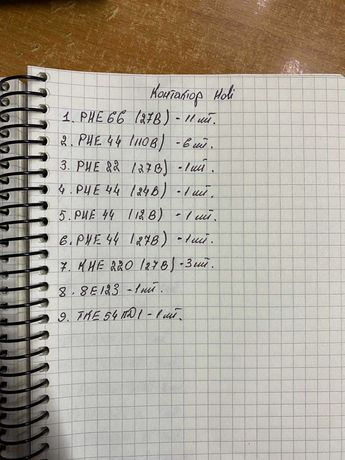 Контактор Нові
1. РНЕ 66 (27В) - 11 шт.
2. РНЕ 44 (110В) - 6 шт.
3. РНЕ 22 (27В) - 1 шт.
4. РНЕ 44 (24В) - 1 шт.
5. РНЕ 44 (12В) - 1 шт.
6. РНЕ 44 (27В) - 1 шт.
7. КНЕ 220 (27В) - 3 шт.
8. 8Е123 - 1 шт.
9. ТКЕ 54 ПД1 - 1 шт.